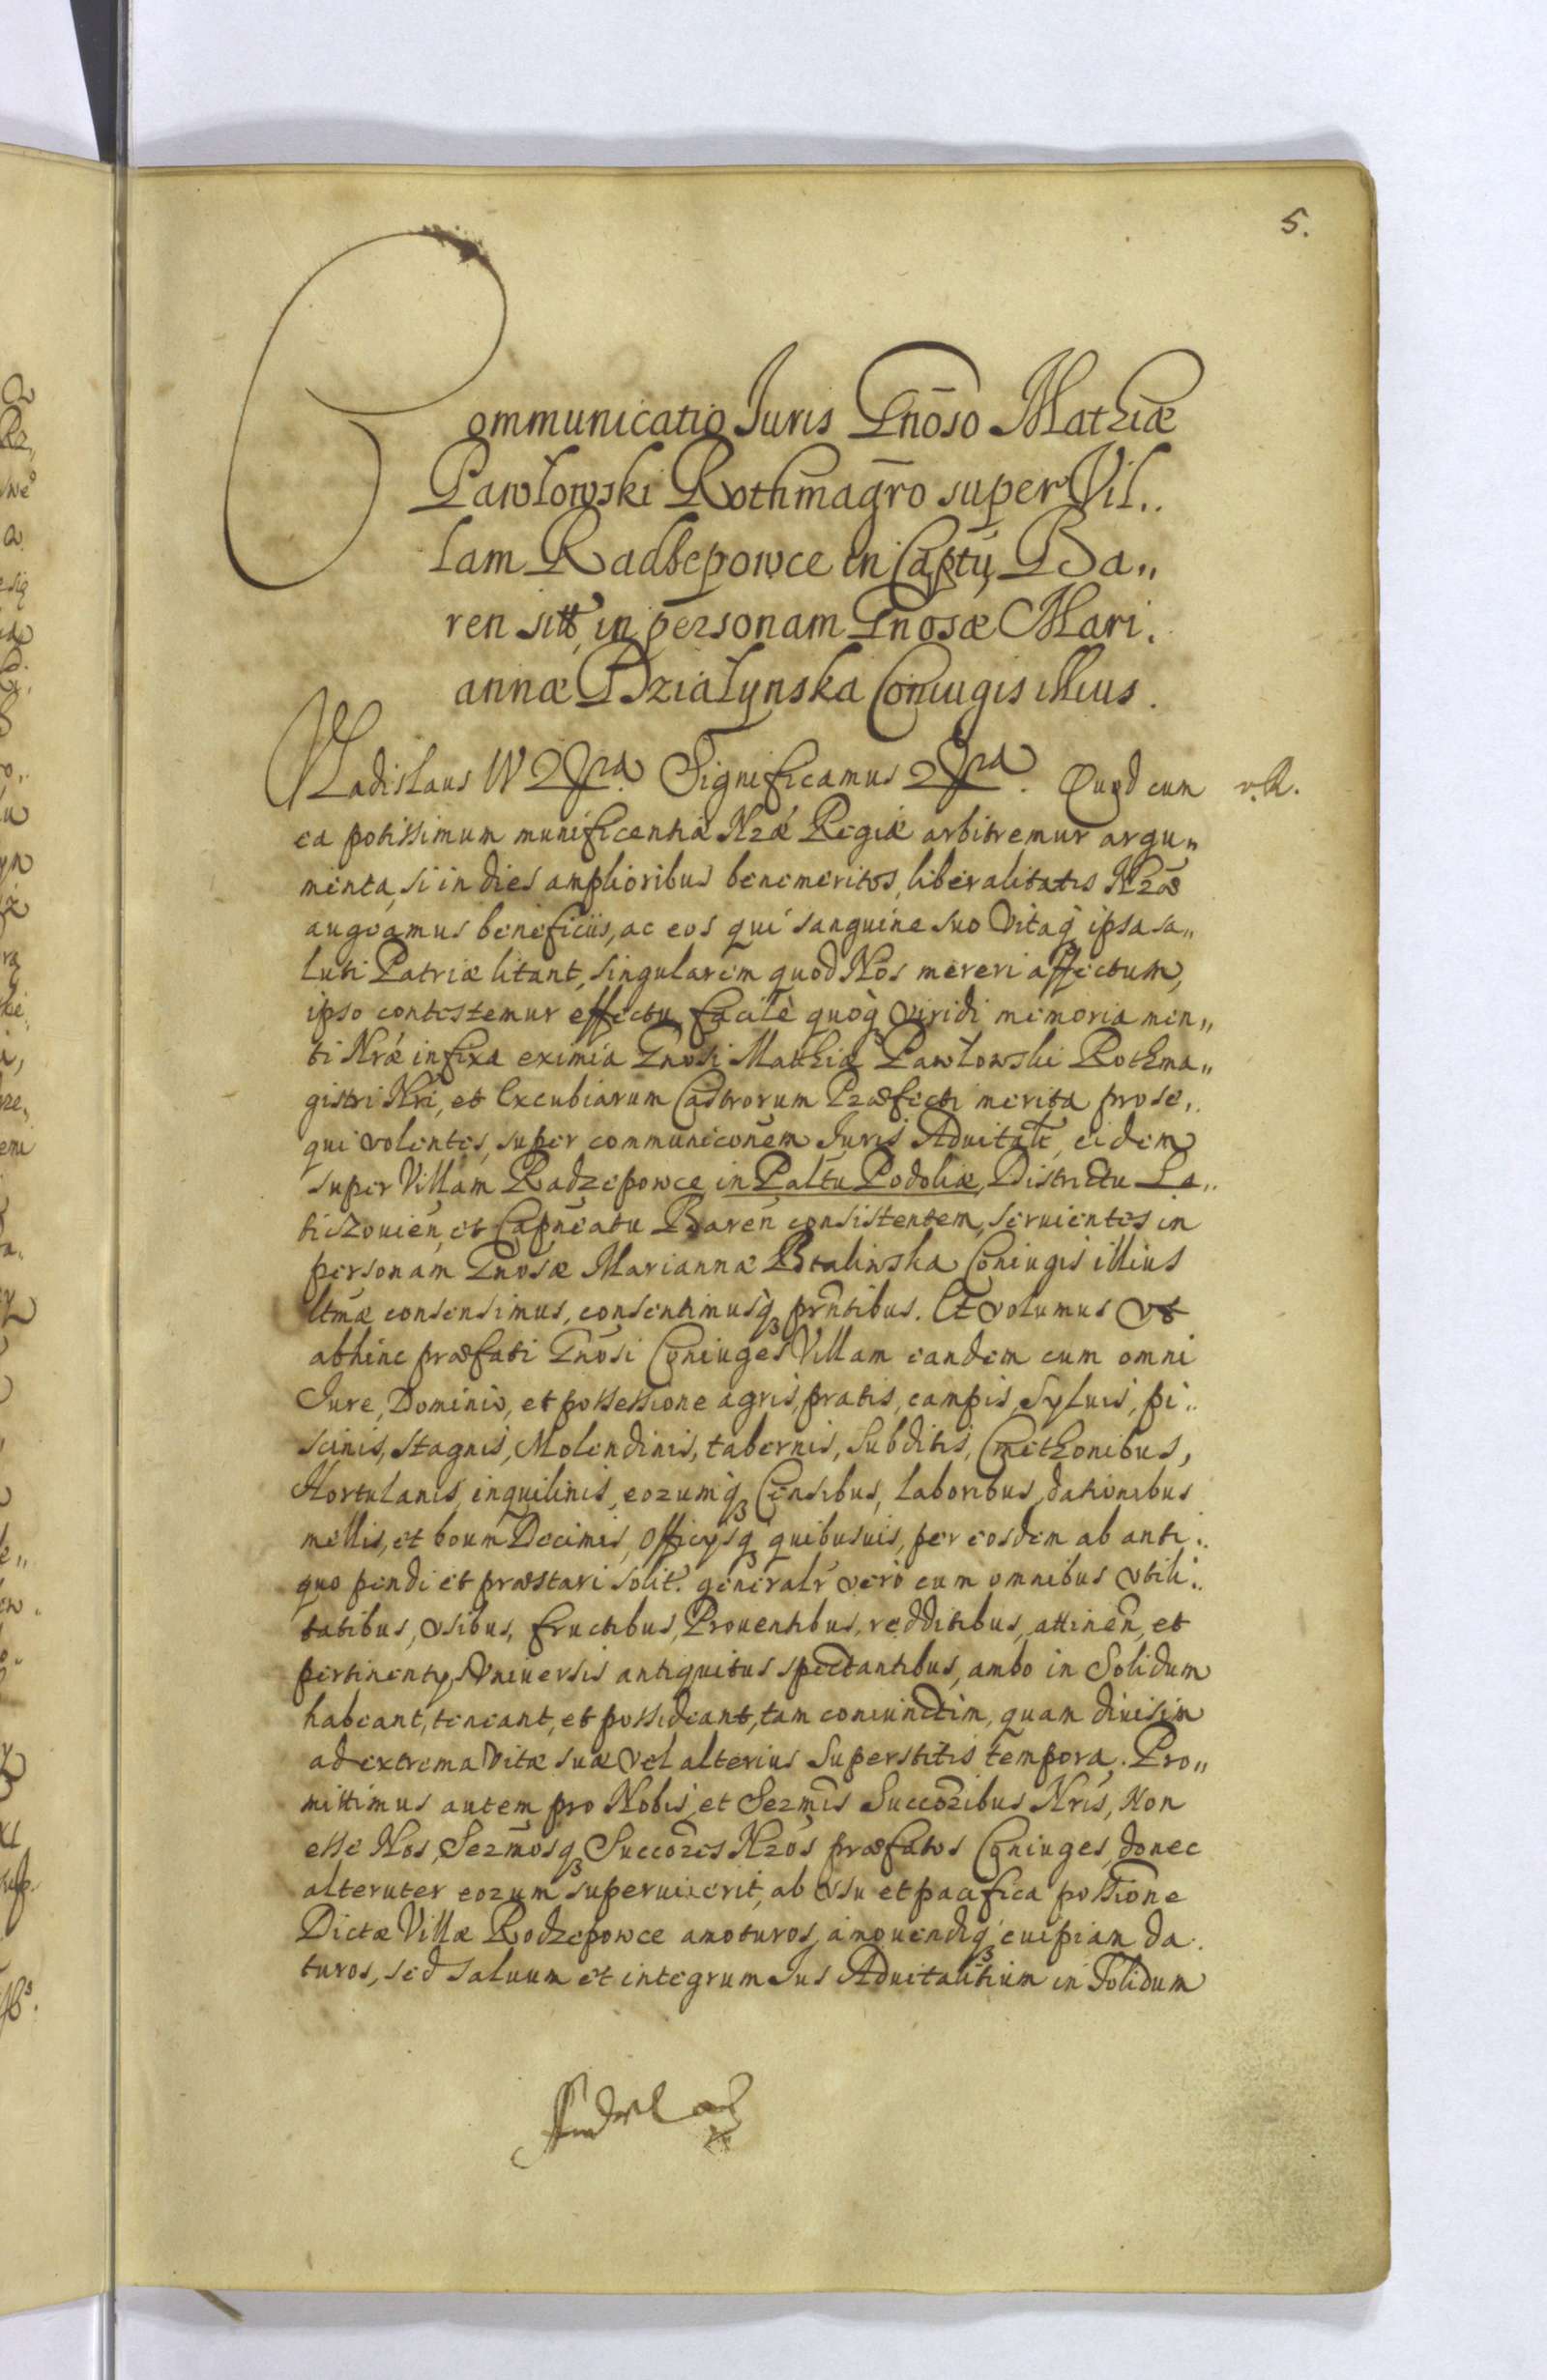 5.
Communicatio Juris Gnõso Mathiæ
Pawłowski Rothmagr̃o super Vil..
lam Radzepowce in Captũ Ba„
ren sitt, in personam Gnosæ Mari.
annæ Działynska Coniugis illius.
Vladislaus IV Significamus Quod cum v.R.
ea potissimum munificentiæ Nræ Regiæ arbitremur argu„
menta, si in dies amplioribus benemeritos, liberalitatis Nræ
augeamus beneficiis, ac eos qui sanguine suo Vitaq ipsa sa„
luti Patriæ litant, singularem quod Nos mereri affectum,
ipso contestemur effectu, facilè quoq viridi memoria men„
ti Nræ infixa eximia Gnosi Mathiæ Pawłowski Rothma„
gistri Nri, et Excubiarum Castrorum Præfecti merita prose„
qui volentes, super communiconem Juris Aduitalt, eidem
super Villam Radzepowce in Paltu Podoliæ, Districtu La..
ticzouien, et Capneatu Baren consistentem, seruientes in
personam Gnosæ Mariannæ Coniugis illius
ltmæ consensimus, consentimusq prñtibus. Et volumus vt
abhinc præfati Gnosi Coniuges Villam eandem cum omni
Jure, Dominio, et possessione agris, pratis, campis, Syluis, pi..
scinis, stagnis, Molendinis, tabernis, Subditis, Cmethonibus,
Hortulanis, inquilinis, eorumq Censibus, laboribus, dationibus
mellis, et boum Decimis, Officysq quibusuis, per eosdem ab anti..
quo pendi et præstari solit. generalr verò cum omnibus vtili..
tatibus, vsibus, fructibus, Prouentibus, redditibus, attinen, et
pertinentys vniuersis antiquitus spectantibus, ambo in Solidum
habeant, teneant, et possideant, tam coniunctim, quam diuisim
ad extrema Vitæ suæ vel alterius Superstitis tempora. Pro„
mittimus autem pro Nobis, et Sermis Succoribus Nris, Non
esse Nos, Sermosq Succores Nros præfatos Coniuges, donec
alteruter eorum superuixerit, ab vsu et pacifica possione
Dictæ Villæ Radzepowce amoturos, amouendiq cuipiam da.
turos, sed saluum et integrum Jus Aduitalitium in Solidum